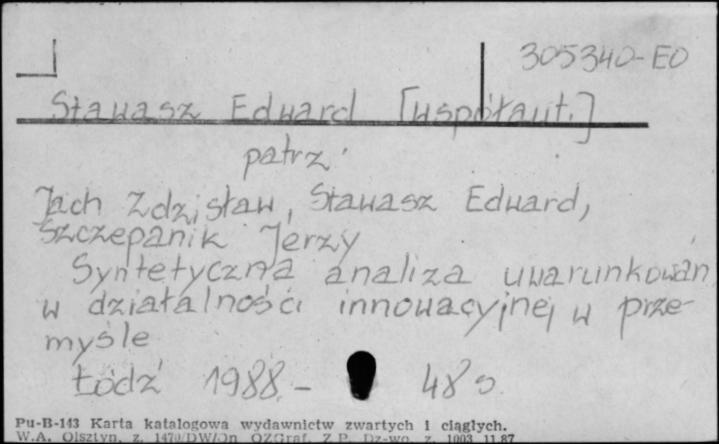 305340-EO
Stawasz Edward [współaut.]
patrz:
Jach Zdzisław, Stawasz Edward,
Szczepanik Jerzy
Syntetyczna analiza uwarunkowań
w działalności innowacyjnej w prze-
myśle
Łódź 1988. - 48 s
Pu-B-143 Karta katalogowa wydawnictw zwartych i ciągłych.
W.A. Olsztyn, z. 1470/DW/Dn OZGraf. Z.P. Dz-wo, z. 1003 11.87